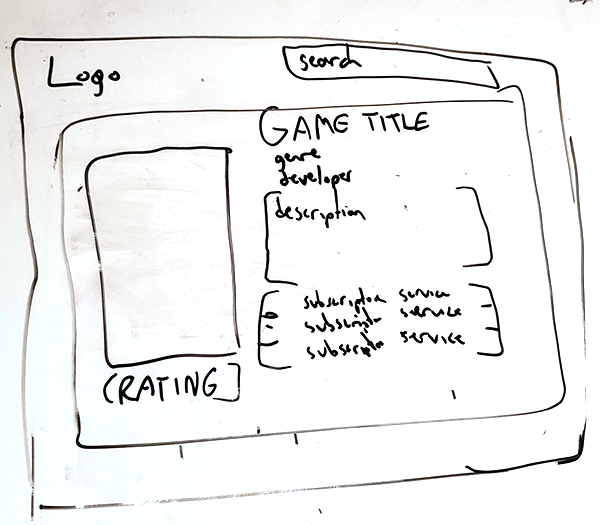 Logo
search
GAME TITLE
genre
developer
description
subscription service
subscriptn service
subscriptn service
(RATING]